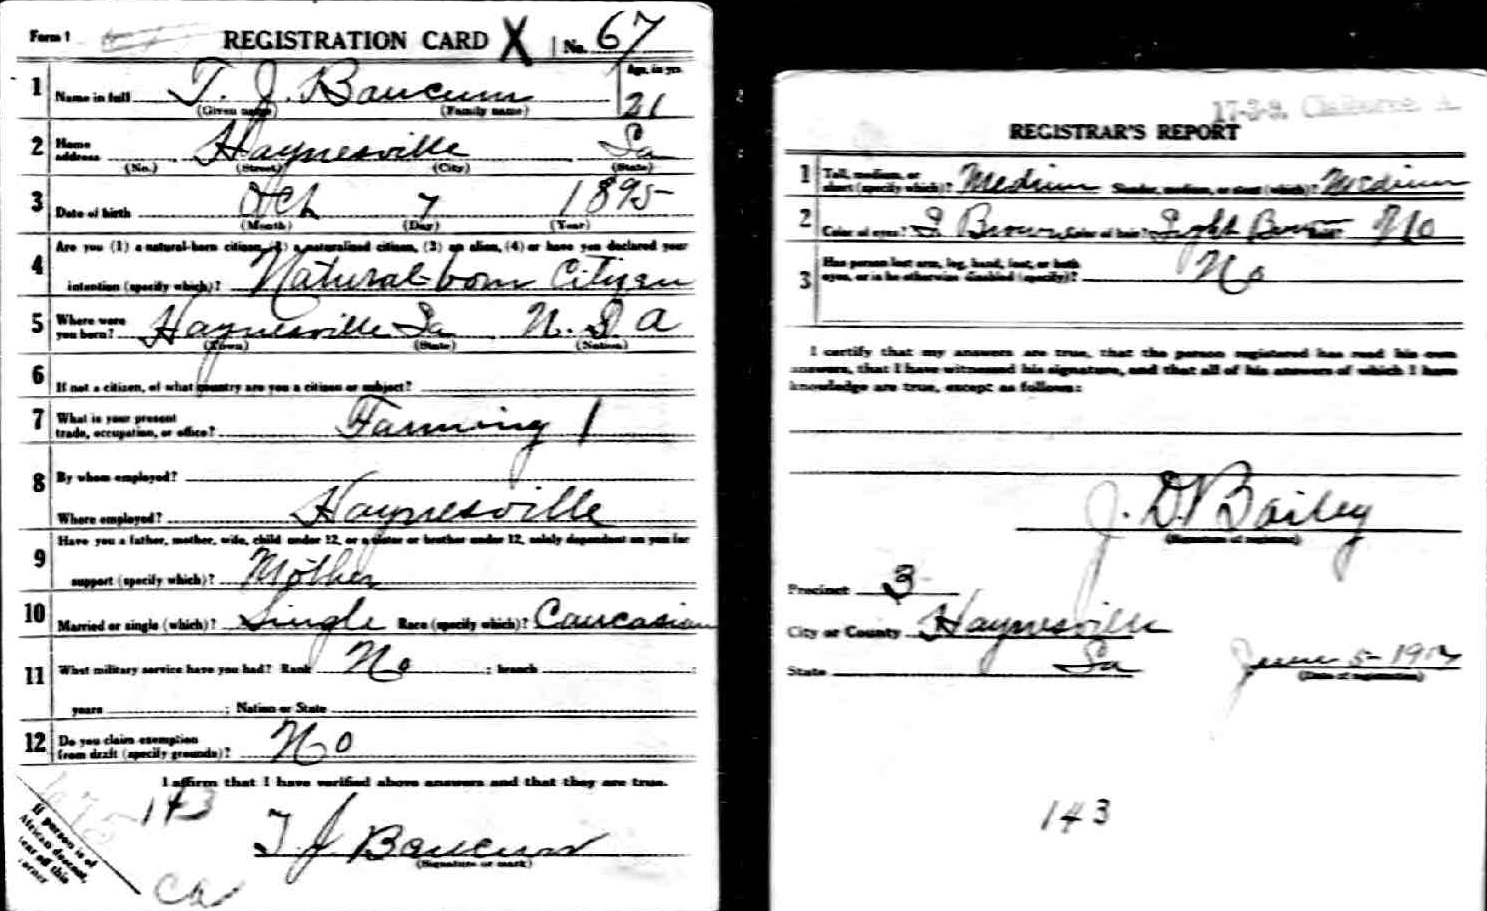 Form 1 REGISTRATION CARD X No. 67
1 Name in full T. J. Baucum Age, in yrs. 21
(Given name) (Family name)
2 Home address Haynesville La
(No.) (Street) (City) (State)
3 Date of birth Oct 7 1895
(Month) (Day) (Year)
4 Are you (1) a natural-born citizen, (2) a naturalized citizen, (3) an alien, (4) or have you declared your
intention (specify which)? Natural-born Citizen
5 Where were you born? Haynesville La U. S. A
(Town) (State) (Nation)
6 If not a citizen, of what country are you a citizen or subject?
7 What is your present trade, occupation, or office? Farming 1
8 By whom employed?
Where employed? Haynesville
9 Have you a father, mother, wife, child under 12, or a sister or brother under 12, solely dependent on you for
support (specify which)? Mother
10 Married or single (which)? Single Race (specify which)? Caucasian
11 What military service have you had? Rank No ; branch ;
years ; Nation or State
12 Do you claim exemption from draft (specify grounds)? No
I affirm that I have verified above answers and that they are true.
143
T. J. Baucum
(Signature or mark)
If person is of
African descent,
tear off this
corner
Ca
17-3-9. Claiborne A.
REGISTRAR'S REPORT
1 Tall, medium, or short (specify which)? Medium Slender, medium, or stout (which)? Medium
2 Color of eyes? L Brown Color of hair? Light Brown Bald? No
3 Has person lost arm, leg, hand, foot, or both
eyes, or is he otherwise disabled (specify)? No
I certify that my answers are true, that the person registered has read his own
answers, that I have witnessed his signature, and that all of his answers of which I have
knowledge are true, except as follows:
J. D. Bailey
(Signature of registrar)
Precinct 3
City or County Haynesville
State La June 5-1917
(Date of registration)
143